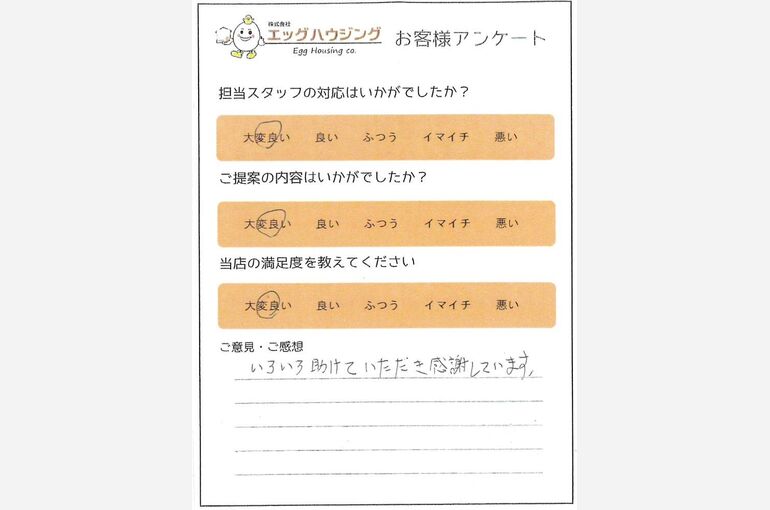 株式会社
エッグハウジング お客様アンケート
Egg Housing co.
担当スタッフの対応はいかがでしたか？
大変良い 良い ふつう イマイチ 悪い
ご提案の内容はいかがでしたか？
大変良い 良い ふつう イマイチ 悪い
当店の満足度を教えてください
大変良い 良い ふつう イマイチ 悪い
ご意見・ご感想
いろいろ助けていただき感謝しています。